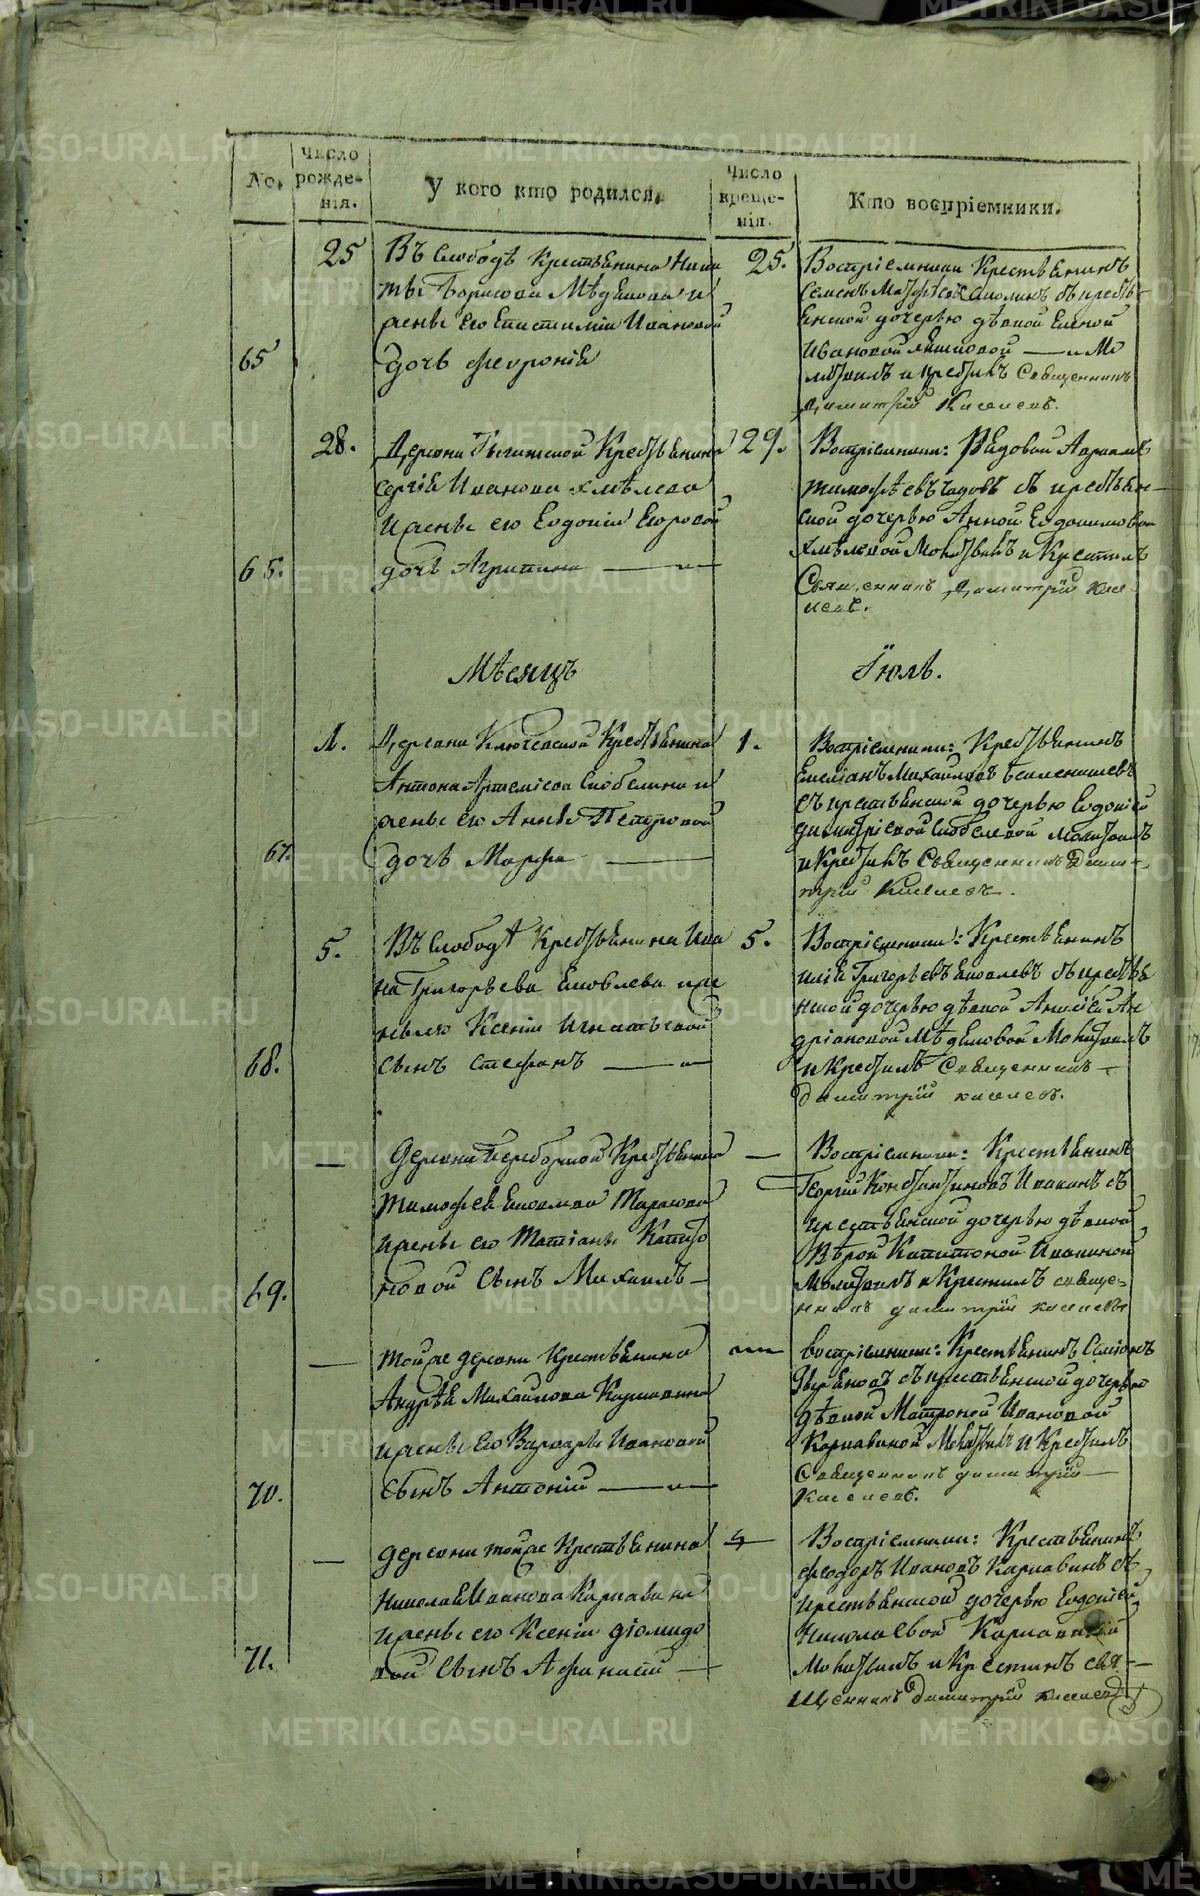 No.
Число рожде-нія.
У кого кто родился.
Число креще-нія.
Кто воспріемники.
25
Въ Слободѣ Крестьянина Ники
ты Борисова Мѣдянова и
жены его Епистиміи Ивановой
65
дочь Феуронія
25.
Воспріемники Крестьянинъ
Семенъ съ кресть-
янской дочерью дѣвкой Еленой
Ивановой и Мо
литвилъ и крестилъ Священникъ
Димитрій Киселевъ.
28.
Деревни Крестьянина
Сергія Иванова Хмѣлева
и жены его Евдокіи Егоровой
65.
дочь Агрипина
29.
Воспріемники: Рядовой
Тимофѣевъ съ крестьян-
ской дочерью Анной Евдокимовой
Хмѣлевой Молитвилъ и Крестилъ
Священникъ Димитрій Кисе
левъ.
Мѣсяцъ
Іюль.
1.
Деревни Ключевской Крестьянина
Антона Артеміева Скобелина и
жены его Анны Петровой
67.
дочь Марфа
1.
Воспріемники: Крестьянинъ
Емеліанъ Михайловъ
съ крестьянской дочерью Евдокіей
Димитріевой Скобелевой Молитвилъ
и Крестилъ Священникъ Дими-
трій Киселевъ.
5.
Въ Слободѣ Крестьянина Ива
на Григорьева Яковлева и же
ны его Ксеніи Игнатьевой
68.
сынъ Стефанъ
5.
Воспріемники: Крестьянинъ
Илія Григорьевъ Яковлевъ съ крестья
нской дочерью дѣвкой Ан
дріановой Мѣдяновой Молитвилъ
и Крестилъ Священникъ
Димитрій Киселевъ.
—
Деревни Переборной Крестьянина
Тимофея Тарасова
и жены его Татіаны Капито
69.
новой сынъ Михаилъ
—
Воспріемники: Крестьянинъ
Георгій Константиновъ Ивакинъ съ
крестьянской дочерью дѣвкой
Вѣрой Капитоной Ивакиной
Молитвилъ и Крестилъ Священ-
никъ Димитрій Киселевъ
—
той же деревни Крестьянина
Андрѣя Михайлова Карнавина
и жены его Варвары Ивановой
70.
сынъ Антоній
—
воспріемники: Крестьянинъ Симіонъ
съ крестьянской дочерью
дѣвкой Матроной Ивановой
Карнавиной Молитвилъ и Крестилъ
Священникъ Димитрій
Киселевъ.
—
деревни той же Крестьянина
Николая Иванова Карнавина
и жены его Ксеніи Діомидо
71.
вой сынъ Афанасій
Воспріемники: Крестьянинъ
Феодоръ Ивановъ Карнавинъ съ
крестьянской дочерью Евдокіей
Николаевой Карнавиной
Молитвилъ и Крестилъ Свя-
щенникъ Димитрій Киселевъ
METRIKI.GASO-URAL.RU